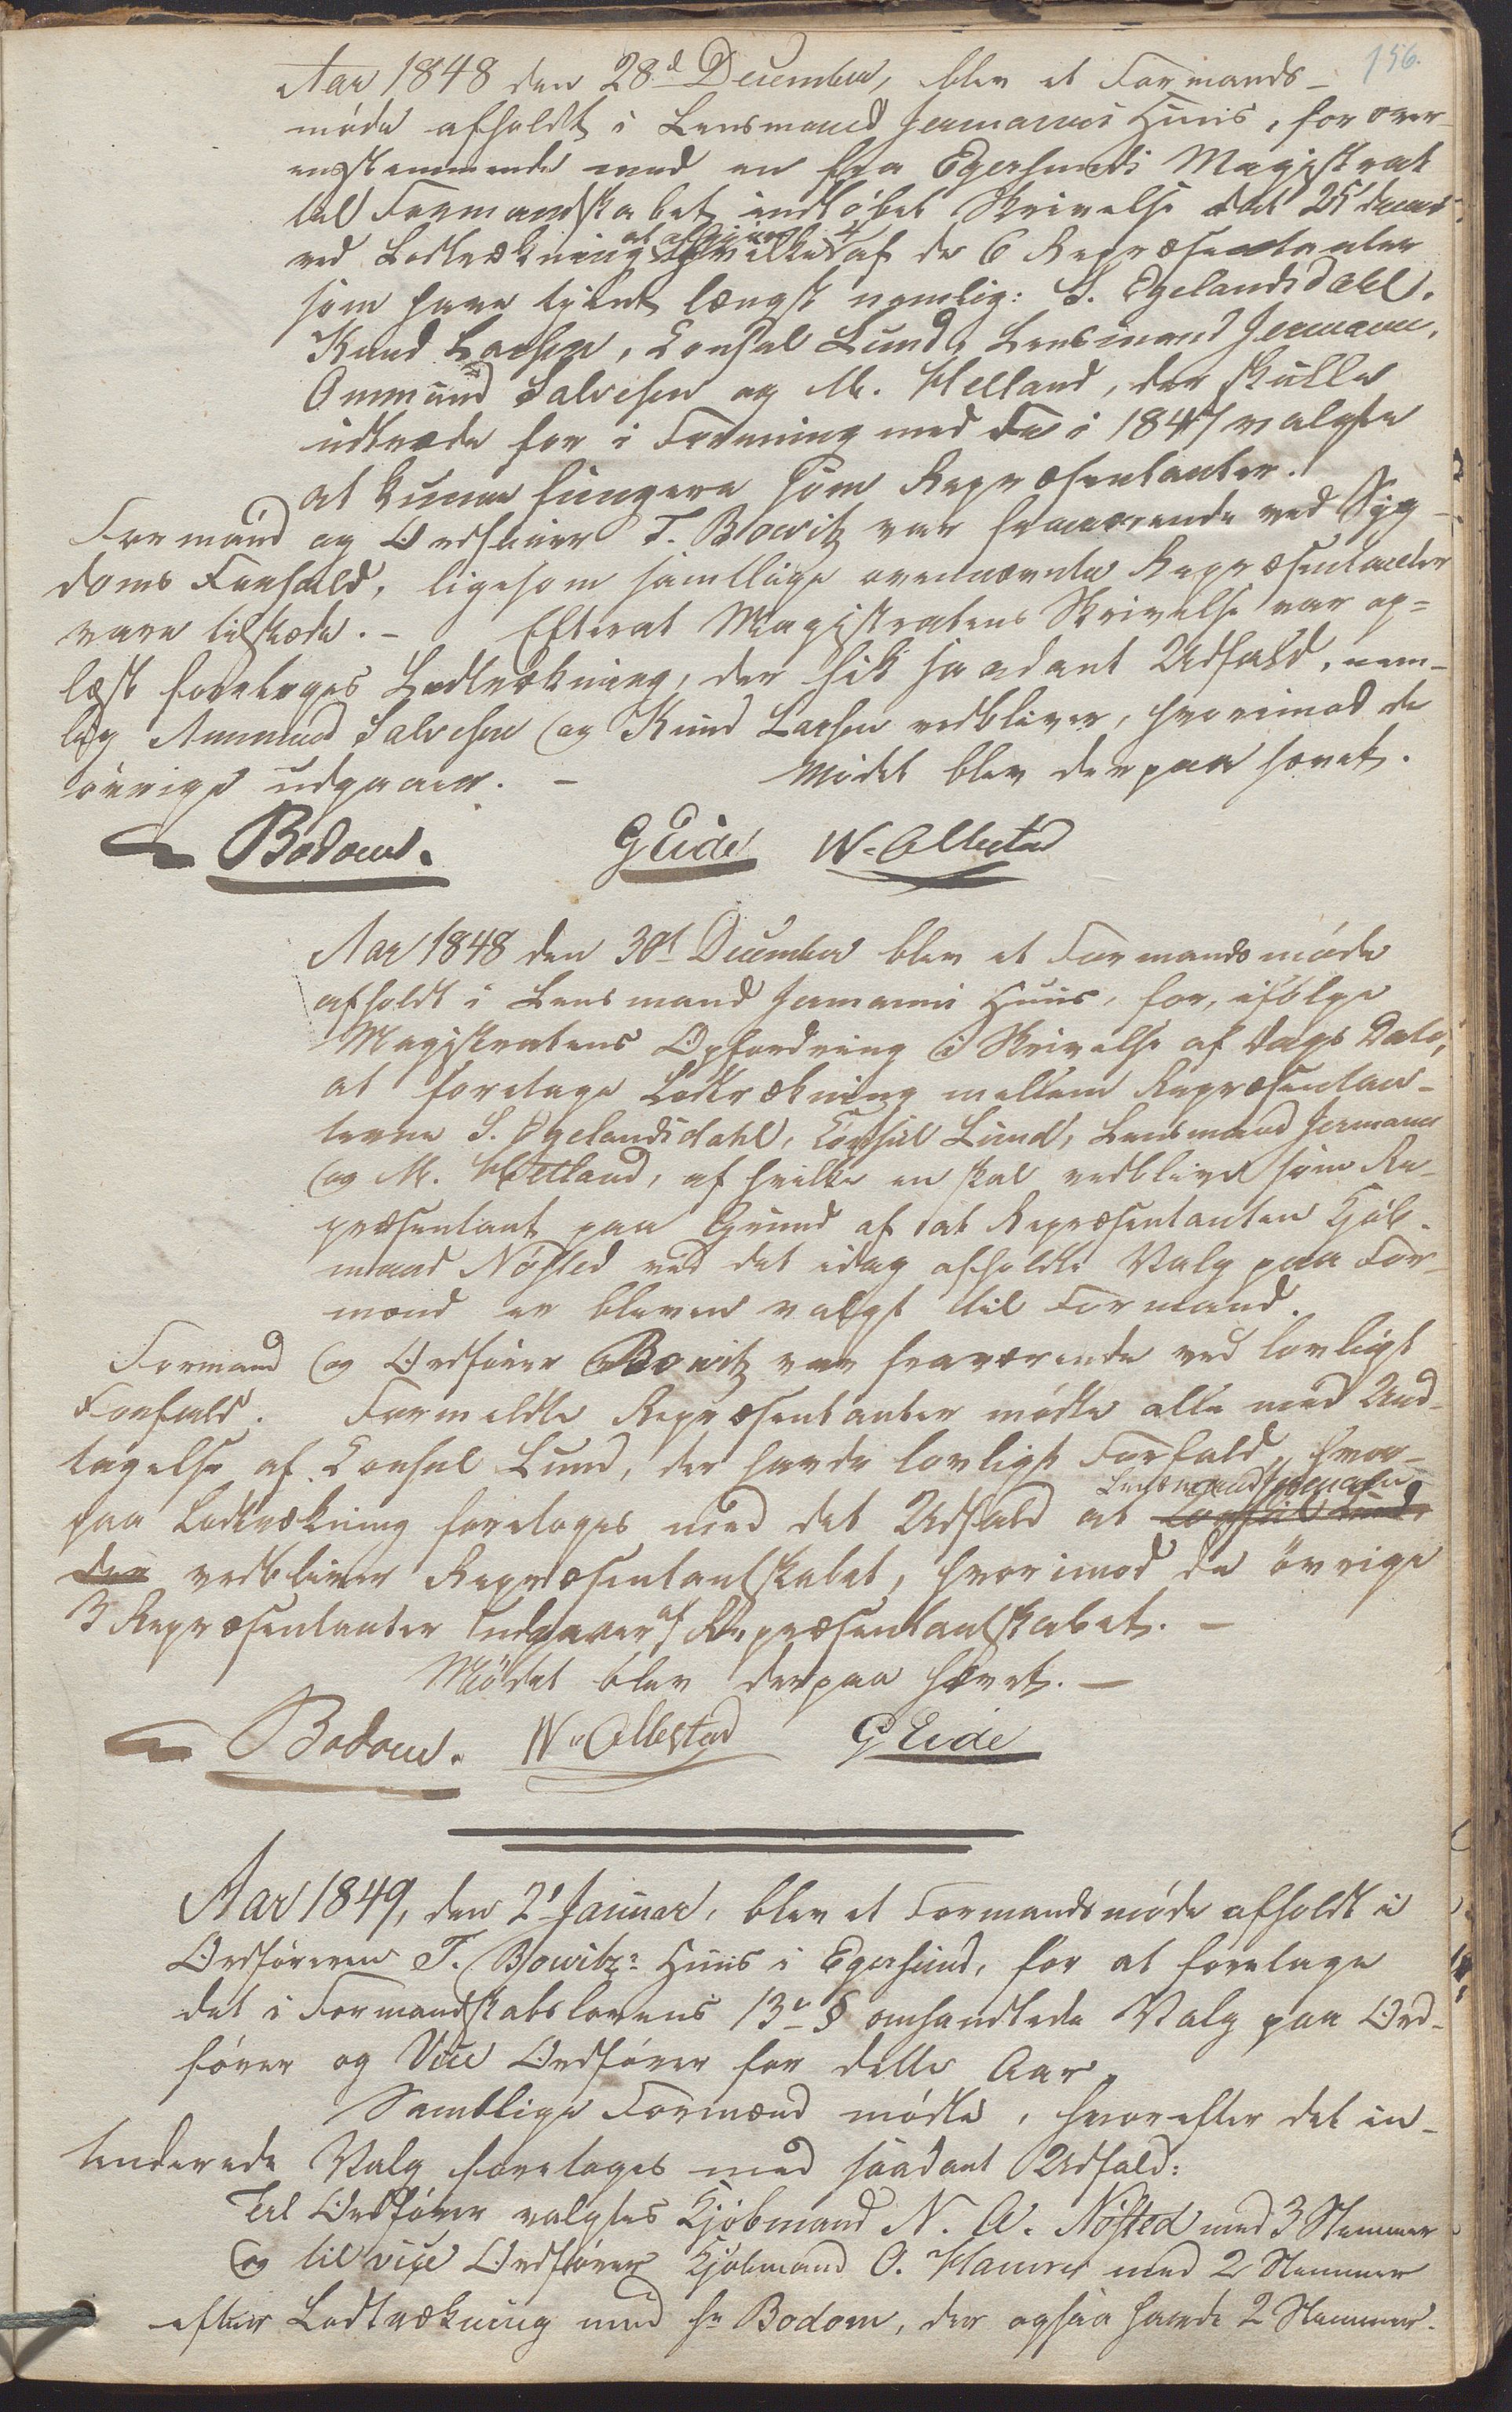 156.
Aar 1848 den 28d December, blev et Formands-
møde afholdt i Lensmand Jermanns Huus, for over-
ensstemmende med en fra Egersunds Magistrat
til Formandskabet indløbet Skrivelse dat 25 dennes
ved Lodtrækning at afgjøre hvilke 4 af de 6 Repræsentanter
som have tjent længst nemlig: S. Egelandsdahl,
Knud Larsen, Consul Lund, Lensmand Jermann,
Ommund Salvesen og M. Hetland, der skulle
udtræde for i Forening med de i 1847 valgte
at kunne fungere som Repræsentanter.
Formand og Ordfører T. Bowitz var fraværende ved Syg-
doms Forfald, ligesom samtlige ovennævnte Repræsentanter
vare tilstæde. - Efterat Magistratens Skrivelse var op-
læst foretoges Lodtrækning, der fik saadant Udfald, nem-
lig Ammund Salvesen og Knud Larsen vedbliver, hvorimod de
øvrige udgaaer. - Mødet blev derpaa hævet.
Bodom. G Eide W. Ollestad
Aar 1848 den 30t December blev et Formandsmøde
afholdt i Lensmand Jermanns Huus, for, ifølge
Magistratens Opfordring i Skrivelse af Dags Dato,
at foretage Lodtrækning mellem Repræsentan-
terne S. Egelandsdahl, Consul Lund, Lensmand Jermann
og M. Hetland, af hvilke en skal vedblive som Re-
præsentant paa Grund af at Repræsentanten Kjøb-
mand Nøsted ved det idag afholdte Valg paa For-
mænd er bleven valgt til Formand.
Formand og Ordfører Bowitz var fraværende ved lovligt
Forfald. Formeldte Repræsentanter mødte alle med Und-
tagelse af Consul Lund, der havde lovligt Forfald, hvor-
paa Lodtrækning foretoges med det Udfald at Lensmand Jermann Consul Lund
der vedbliver Repræsentantskabet, hvorimod de øvrige
3 Repræsentanter udgaaer af Repræsentantskabet. -
Mødet blev derpaa hævet. -
Bodom. W. Ollestad G Eide
Aar 1849, den 2' Januar, blev et Formandsmøde afholdt i
Ordføreren T. Bowitz's Huus i Egersund, for at foretage
det i Formandskabslovens 13de § omhandlede Valg paa Ord-
fører og Vice Ordfører for dette Aar.
Samtlige Formænd mødte, hvorefter det in-
tenderede Valg foretoges med saadant Udfald:
Til Ordfører valgtes Kjøbmand N. A. Nøsted med 3 Stemmer
og til vice Ordfører Kjøbmand O. Hamre med 2 Stemmer
efter Lodtrækning med Hr Bodom, der ogsaa havde 2 Stemmer.